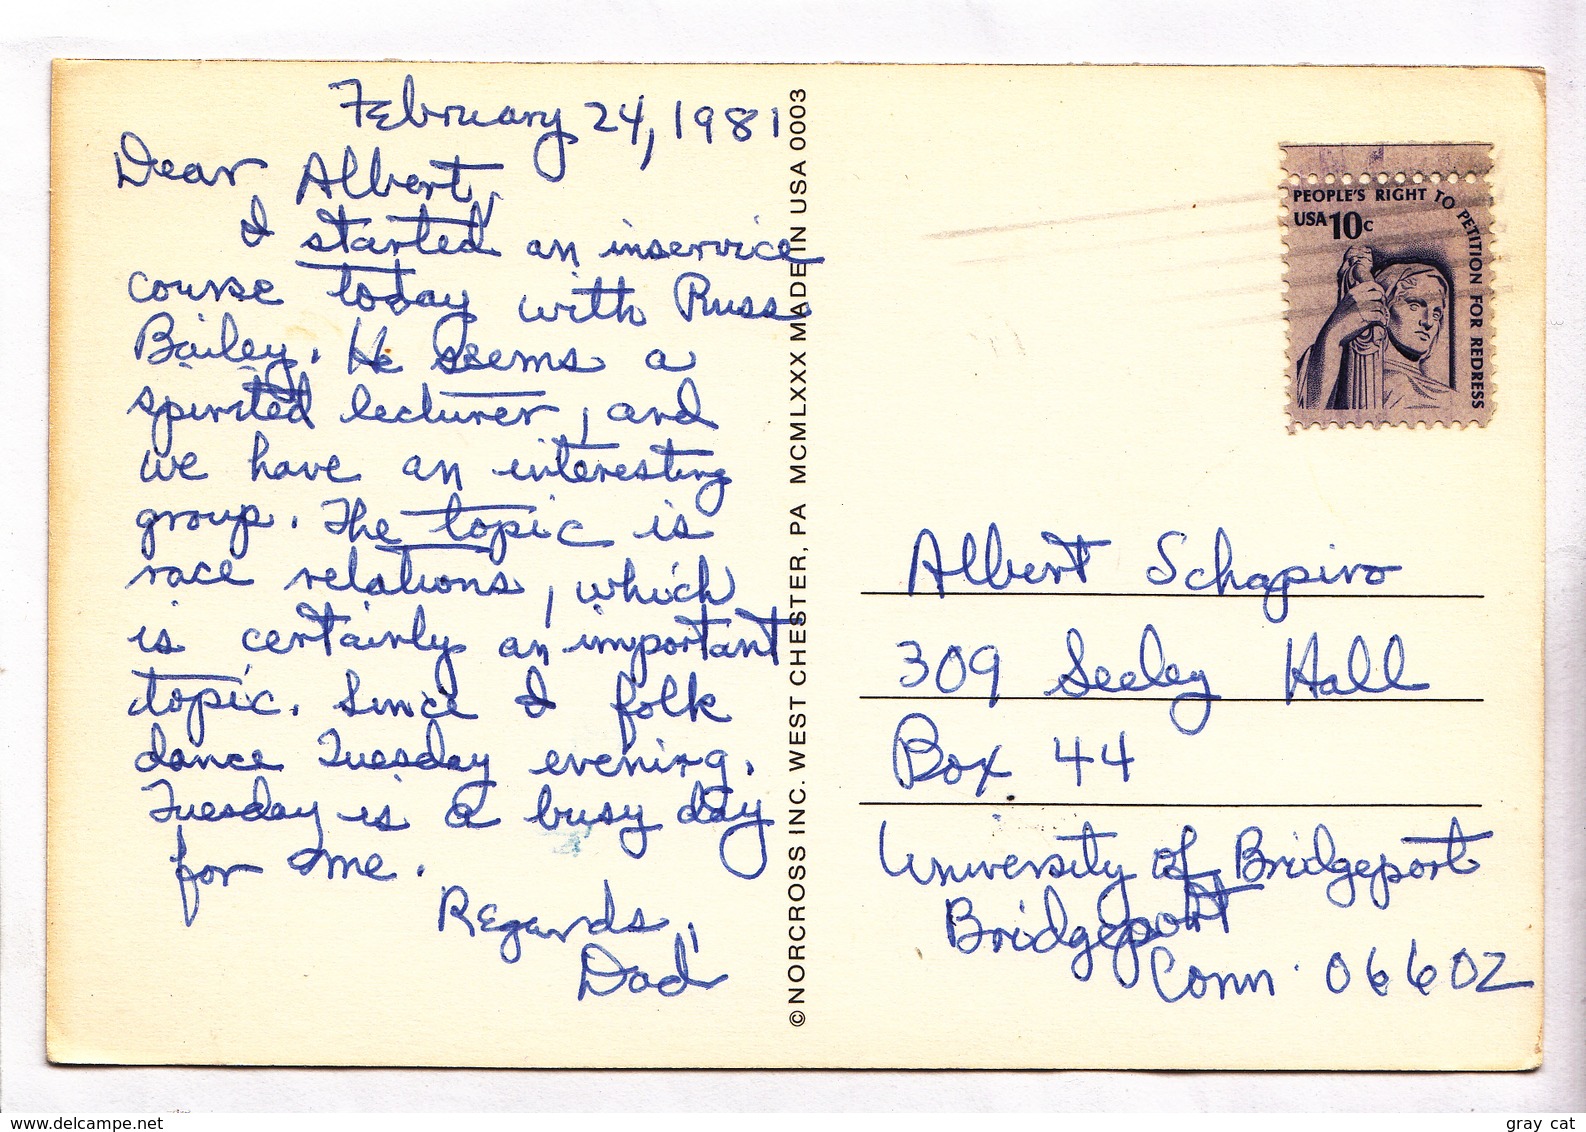 February 24, 1981
Dear Albert,
I started an inservice
course today with Russ
Bailey. He seems a
spirited lecturer, and
we have an interesting
group. The topic is
race relations, which
is certainly an important
topic. Since I folk
dance Tuesday evening,
Tuesday is a busy day
for me.
Regards,
Dad
© NORCROSS INC. WEST CHESTER, PA MCMLXXX MADE IN USA 0003
PEOPLE'S RIGHT TO PETITION FOR REDRESS
USA 10c
Albert Schapiro
309 Seeley Hall
Box 44
University of Bridgeport
Bridgeport
Conn. 06602
www.delcampe.net
gray cat